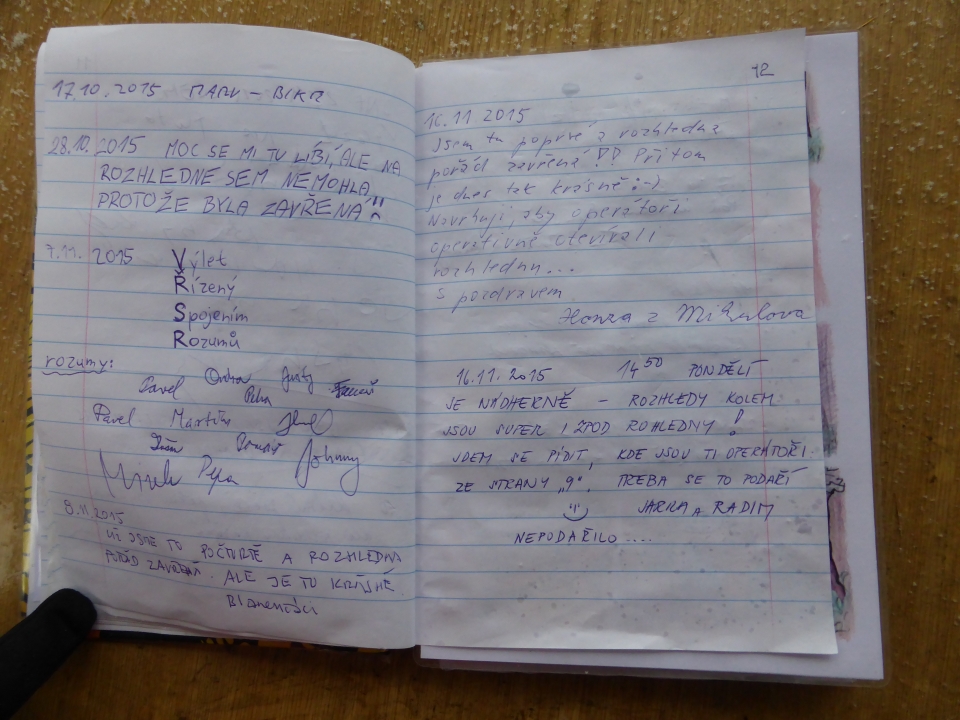 17.10.2015 MARV - BIKR
28.10.2015 MOC SE MI TU LÍBÍ, ALE NA
ROZHLEDNE SEM NEMOHLA,
PROTOŽE BYLA ZAVŘENÁ!!
7.11. 2015 Výlet
Řízený
Spojením
Rozumů
rozumy:
Pavel Ondra Petra
Pavel Martin
Tomáš Johnny
Mirek Pepa
8.11.2015
UŽ JSME TU POČTVRTÉ A ROZHLEDNA
POŘÁD ZAVŘENÁ. ALE JE TU KRÁSNĚ.
12
16.11 2015
Jsem tu poprvé a rozhledna
pořád zavřená!! Přitom
je dnes tak krásně :-)
Navrhuji, aby operátoři
operativně otevírali
rozhlednu...
S pozdravem
Honza z Mikulova
16.11.2015 14 50 PONDĚLÍ
JE NÁDHERNĚ - ROZHLEDY KOLEM
JSOU SUPER I ZPOD ROHLEDNY!
JDEM SE PÍDIT, KDE JSOU TI OPERÁTOŘI
ZE STRANY „9". TŘEBA SE TO PODAŘÍ
JARKA A RADIM
NEPODAŘILO....